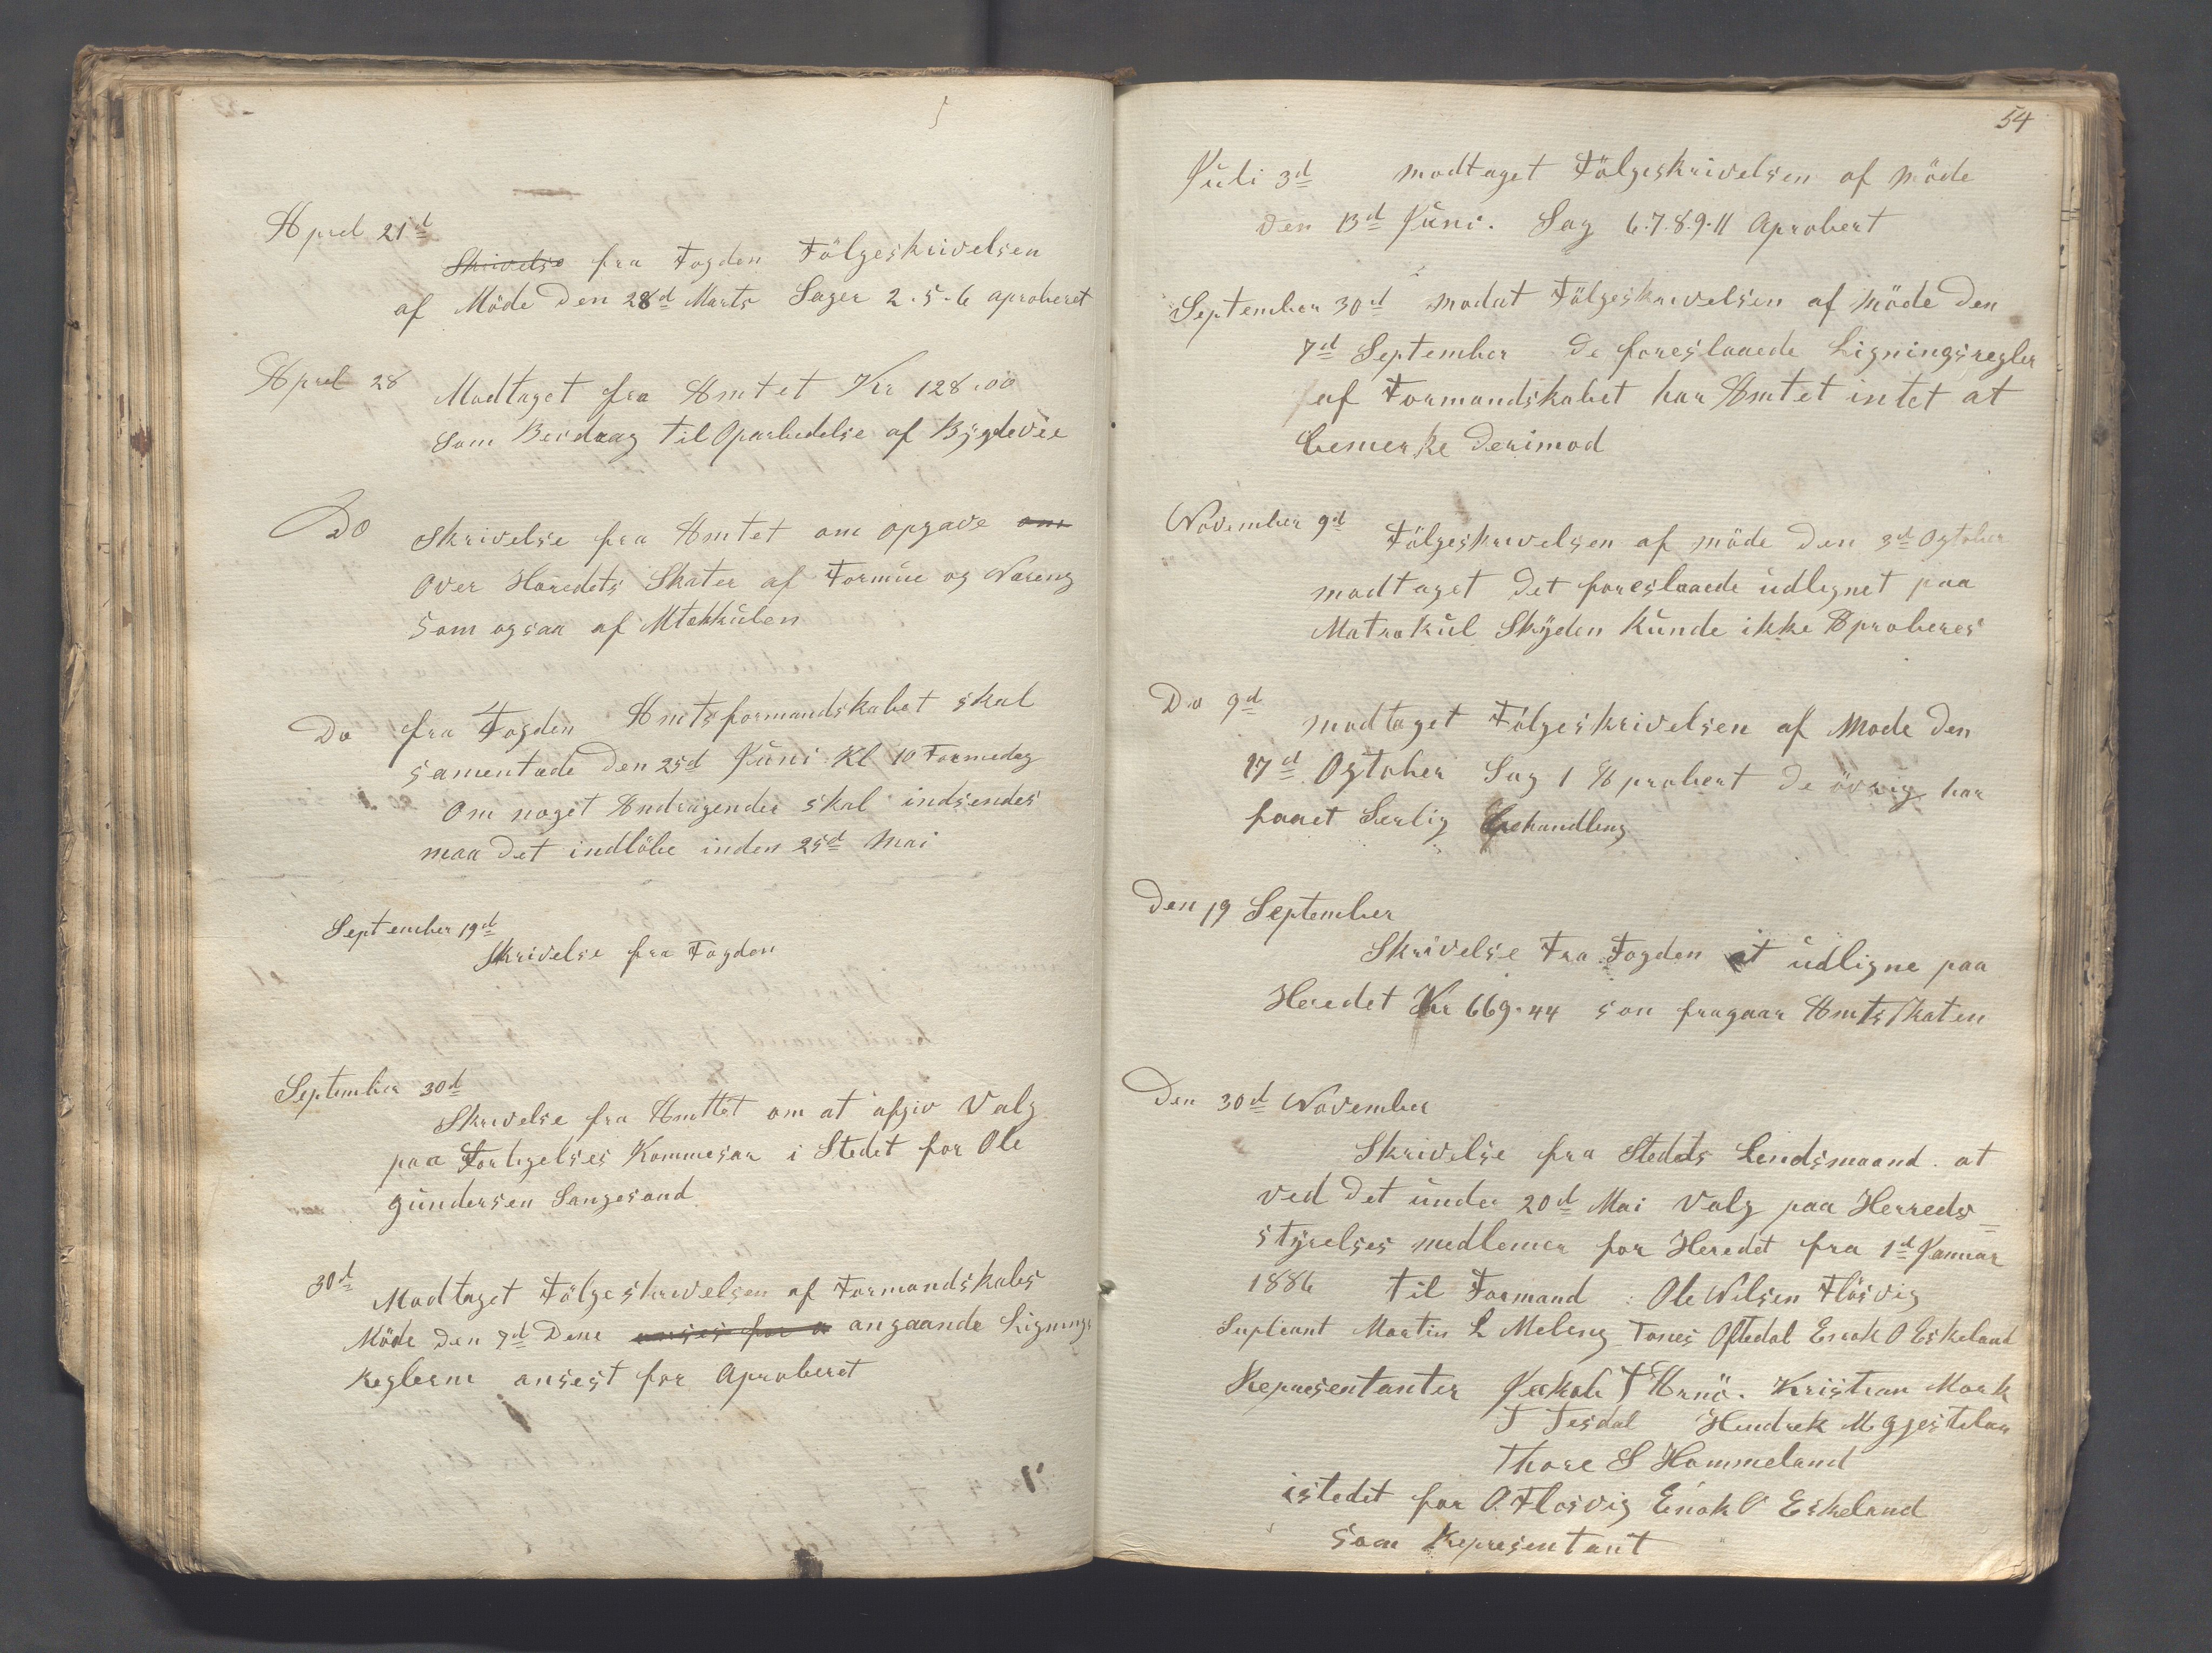 Aprel 21d
Skrivelse fra Fogden Fölgeskrivelsen
af Möde den 28d Marts Sager 2. 5. 6 aproberet
Aprel 28
Modtaget fra Amtet Kr 128,00
som Beidrag til Oparbedelse af Bÿgdeveie
Do
Skrivelse fra Amtet om opgave om
over Heredets Skater af Formue og Næring
som ogsaa af Mtekkulen
Do fra Fogden Amtsformandskabet skal
samentræde den 25d Juni Kl 10 Formedag
Om noget Andragender skal indsendes
maa det indlöbe inden 25d Mai
September 19d
Skrivelse fra Fogden
September 30d
Skrivelse fra Amttet om at afgiv Valg
paa Forligelses Kommesær i Stedet for Ole
gundersen Sangesand
30d
Modtaget Fölgeskrivelsen af Formandskabs
Möde den 7d Dene anses for a angaaende Lignings
Reglerne ansest for Aproberet
54
Juli 3d modtaget Fölgeskrivelsen af Möde
den 13d Juni. Sag 6. 7. 8. 9. 11 Aprobert
September 30d modat Fölgeskrivelsen af Möde den
7d September De foreslaaede Ligningsregler
af Formandskabet har Amtet intet at
bemerke derimod
November 9d
Fölgeskrivelsen af möde den 3d Ogtober
modtaget det foreslaaede udlignet paa
Matrokul Skÿlden kunde ikke Aproberes
Do 9d
modtaget Fölgeskrivelsen af Mode den
17d Ogtober Sag 1 Aprobert de övrig har
faaet Serlig Behandling
Den 19 September
Skrivelse Fra Fogden at udligne paa
Heredet Kr 669.44 son fragaar Amtsskaten
Den 30d November
Skrivelse fra Stedets Lendsmaand. at
ved det under 20d Mai Valg paa Herreds=
stÿrelses medlemer for Heredet fra 1d Januar
1886 til Formand : Ole Nilsen Flösvig
Supleant Martin L Meling Tönes Oftedal Enok O Eskeland
Representanter Jakob T Arnö. Kristian Mork
T Tesdal Hendrek M gjestelan
Thore S Hommeland
istedet for O. Flosvig Enok O Eskeland
som Representant